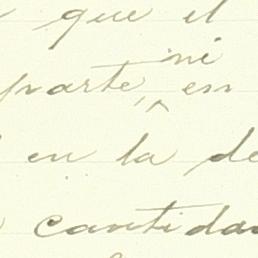 que el
ni
parte, en
en la de
cantidad